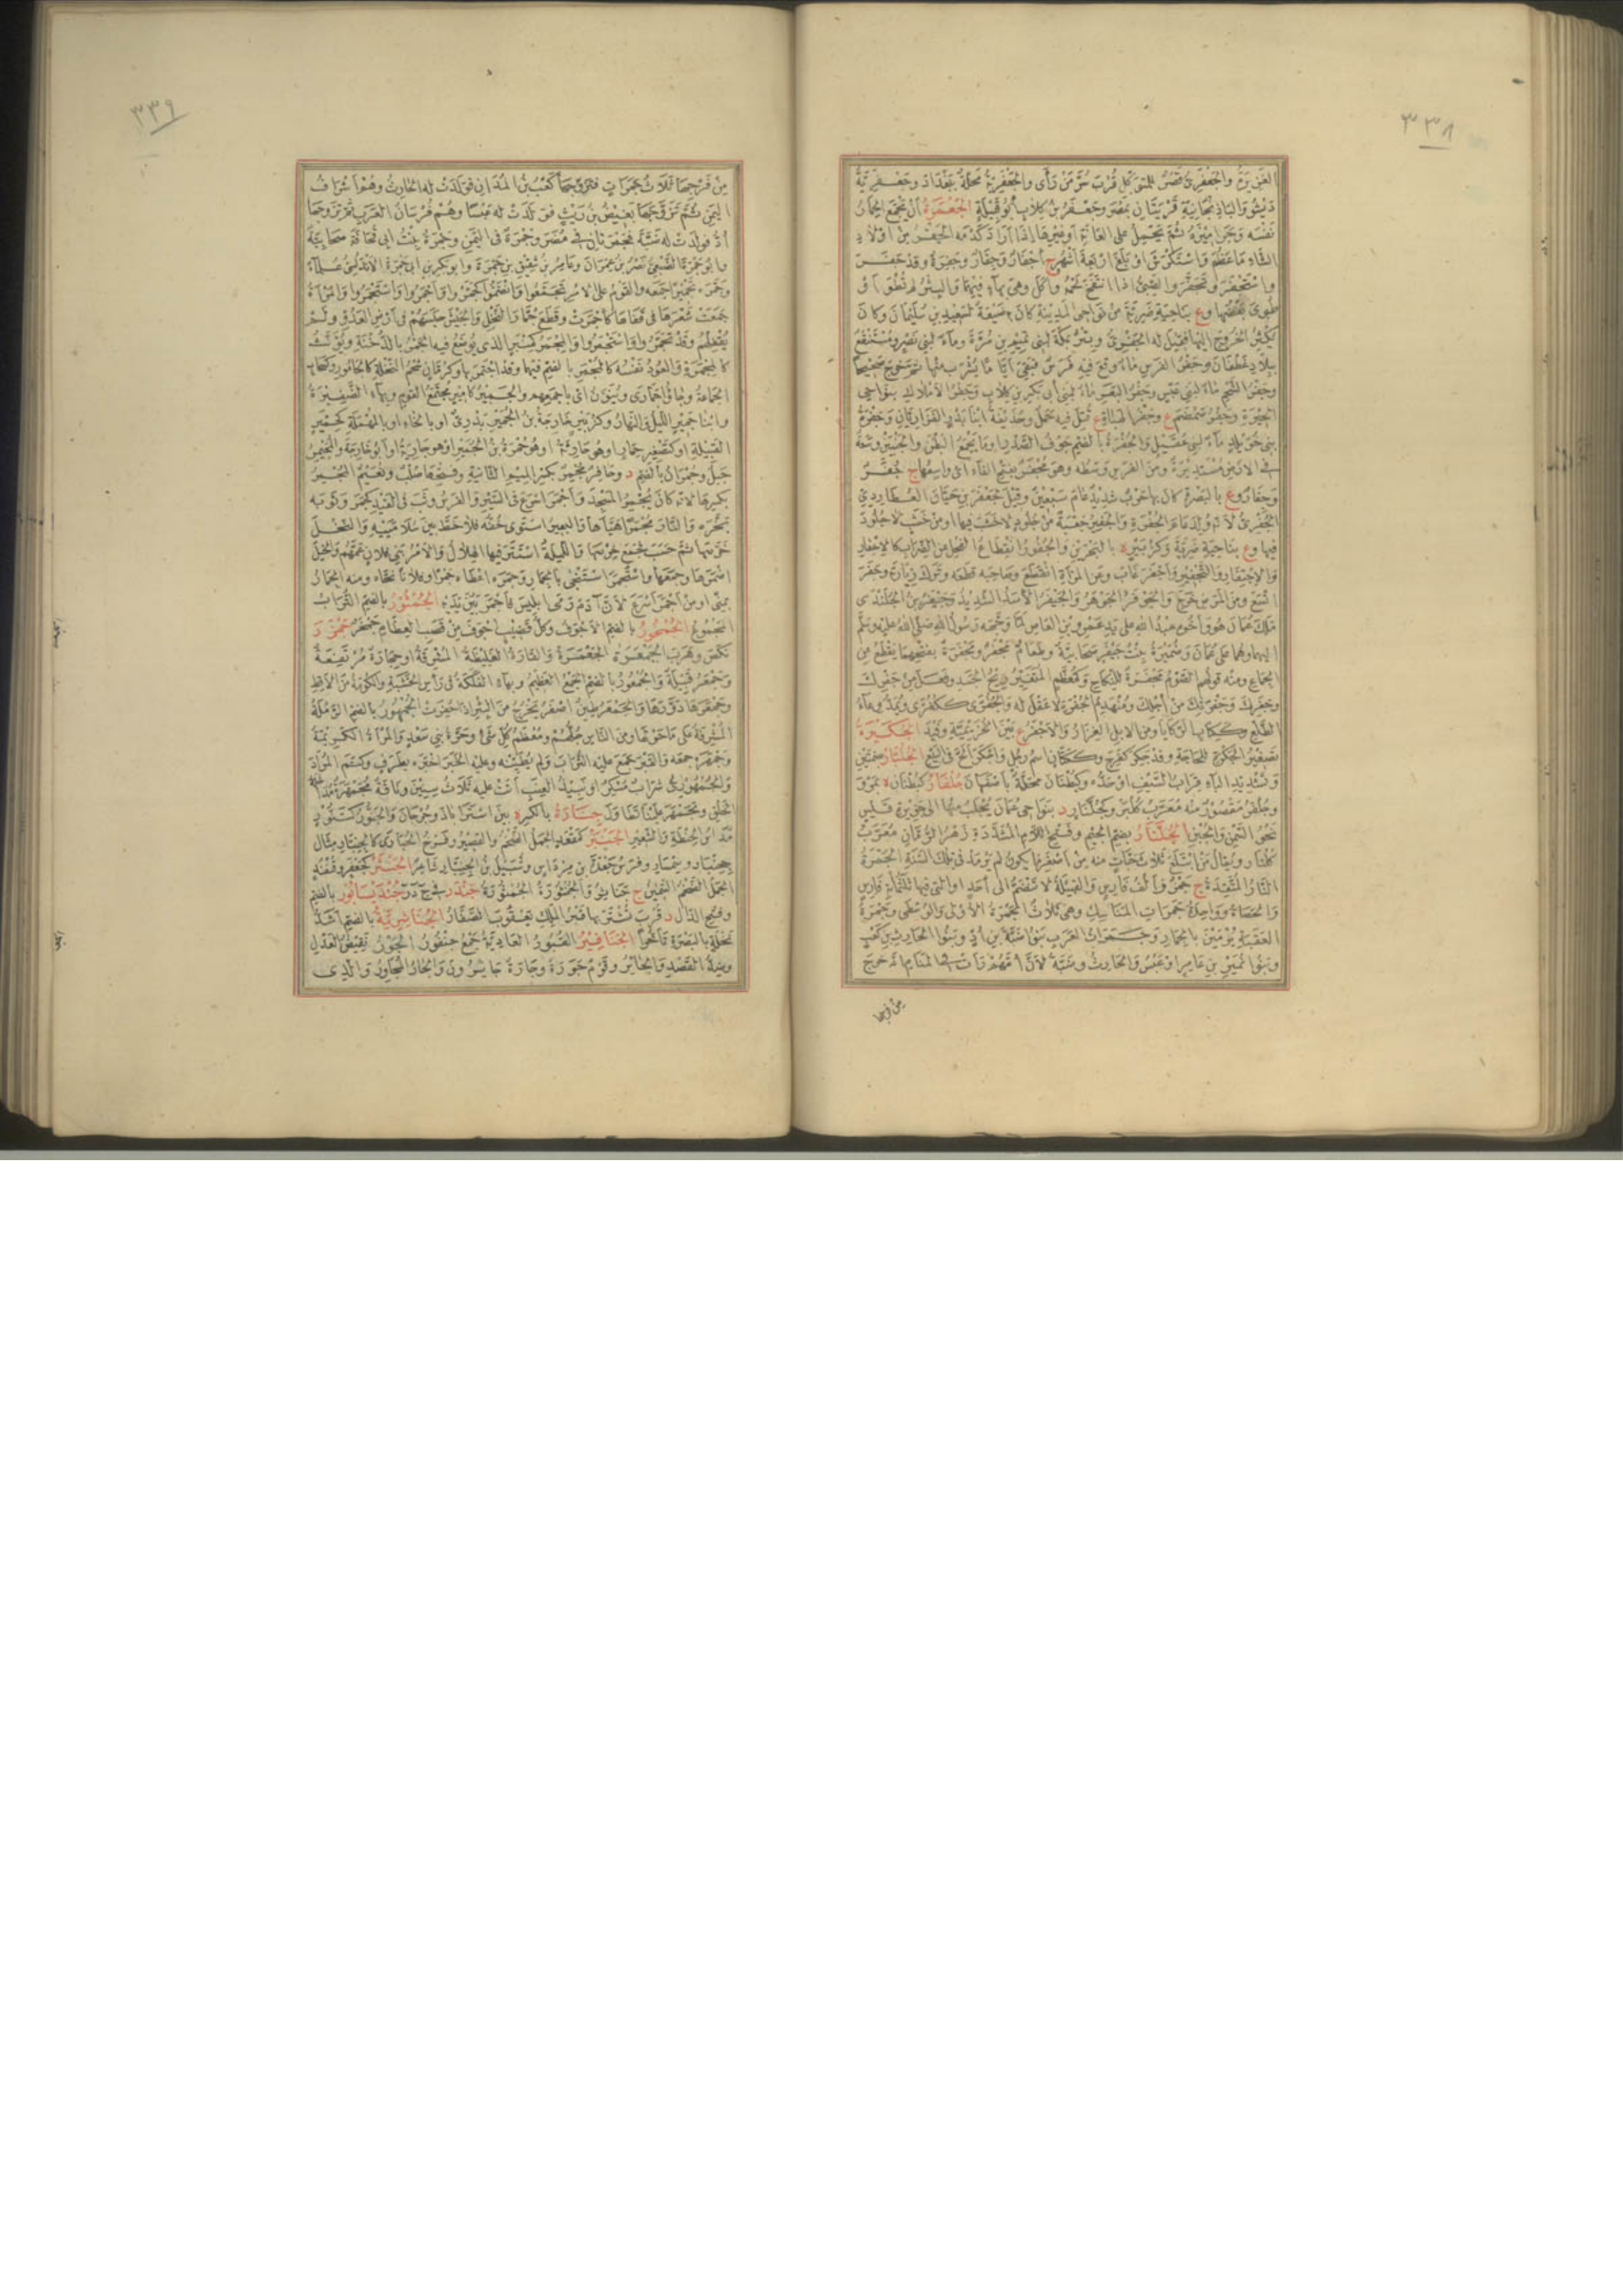 ٣٣٨
الغزيرة والجعفري قصر للمتوكل قرب سر من رأى والجعفرية محلة ببغداد وجعفرية
دبيثو والباذنجانية قريتان بمصر وجعفر بن كلاب أبو قبيلة الجعمرة أن يجمع الحمار
نفسه وجراميزه ثم يحمل على العانة أو غيرها إذا أراد كدمه الجفر من أولاد
الشاء ما عظم واستكرش أو بلغ أربعة أشهر ج أجفار وجفار وجفرة وقد جفر
واستجفر وتجفر والصبي إذا انتفخ لحمه وأكل وهي بهاء فيهما والبئر لم تطو أو
طوي بعضها وع بناحية ضرية من نواحي المدينة كان به ضيعة لسعيد بن سليمان وكان
يكثر الخروج إليها فقيل له الجفري وبئر بمكة لبني تيم بن مرة وماء لبني نصر ومستنقع
ببلاد غطفان وجفر الفرس ماء وقع فيه فرس فبقي أياما يشرب منها ثم خرج صحيحا
وجفر الشحم ماء لبني عبس وجفر البعر ماء لبني أبي بكر بن كلاب وجفر الأملاك بنواحي
الحيرة وجفر ضمضم ع وجفر الهباءة ع قتل فيه حمل وحذيفة ابنا بدر الفزاريان وجفرة
بني خويلد ماء لبني عقيل والجفرة بالضم جوف الصدر أو ما يجمع البطن والجنبين وسعة
في الأرض مستديرة ومن الفرس وسطه وهو مجفر بفتح الفاء أي واسعها ج جفر
وجفار وع بالبصرة كان بها حرب شديد عام سبعين وقيل لجعفر بن حيان العطاردي
الجفري لأنه ولد عام الجفرة والجفير جعبة من جلود لا خشب فيها أو من خشب لا جلود
فيها وع بناحية ضرية وكزبير ة بالبحرين والجفور انقطاع الفحل عن الضراب كالإجفار
والاجتفار والتجفير وأجفر غاب وعن المرأة انقطع وصاحبه قطعه وترك زيارته وجفر
اتسع ومن المرض خرج والجوفر الجوهر والجيفر الأسد الشديد وجيفر بن الجلندى
ملك عمان هو وأخوه عبد الله على يد عمرو بن العاص لما وجهه رسول الله صلى الله عليه وسلم
إليهما وهما على عمان وضميرة بنت جيفر صحابية وطعام مجفر ومجفرة بفتحهما يقطع عن
الجماع ومنه قولهم الصوم مجفرة للنكاح وكمعظم المتغير ريح الجسد وفعل من جفرك
وجفرك وجفرتك من أجلك ومنهدم الجفرة لا عقل له والجفرى ككفرى ويمد وعاء
الطلع وككتاب الركايا ومن الإبل الغزار والأجفر ع بين الخزيمية وفيد الجكيرة
تصغير الجكرة للحاجة وقد جكر كفرح وككتاب اسم رجل وأجكر ألح في البيع الجلبار بضمتين
وتشديد الباء قراب السيف أو حده وكبطنان محلة بأصفهان جلفار كبطنان ة بمرو
وجلفر مقصور منه معرب كلبر وكجلنار د بنواحي عمان يجلب منها إلى جزيرة قيس
نحو السمن والجبن الجلنار بضم الجيم وفتح اللام المشددة زهر الرمان معرب
كلنار ويقال من ابتلع ثلاث حبات منه من أصغر ما يكون لم يرمد في تلك السنة الجمرة
النار المتقدة ج جمر وألف فارس والقبيلة لا تنضم إلى أحد أو التي فيها ثلثمائة فارس
والحصاة وواحدة جمرات المناسك وهي ثلاث الجمرة الأولى والوسطى وجمرة
العقبة يرمين بالجمار وجمرات العرب بنو ضبة بن أد وبنو الحارث بن كعب
وبنو نمير بن عامر أو عبس والحارث وضبة لأن أمهم رأت في المنام أنه خرج
من فرجها
٣٣٩
من فرجها ثلاث جمرات فتزوجها كعب بن المدان فولدت له الحارث وهم أشراف
اليمن ثم تزوجها بغيض بن ريث فولدت له عبسا وهم فرسان العرب ثم تزوجها
أد فولدت له ضبة فجمرتان في مضر وجمرة في اليمن وجمرة بنت أبي قحافة صحابية
وأبو جمرة الضبعي نصر بن عمران وعامر بن شقيق بن جمرة وأبو بكر بن أبي جمرة الأندلسي علماء
وجمره تجميرا جمعه والقوم على الأمر تجمعوا وانضموا كجمروا وأجمروا واستجمروا والمرأة
جمعت شعرها في قفاها كأجمرت وقطع جمار النخل والجيش حبسهم في أرض العدو ولم
يقفلهم وقد تجمروا واستجمروا والمجمر كمنبر الذي يوضع فيه الجمر بالدخنة ويؤنث
كالمجمرة والعود نفسه كالمجمر بالضم فيهما وقد اجتمر بها وكرمان شحم النخلة كالجامور وكسحاب
الجماعة وجاؤا جمارى وينون أي بأجمعهم والجمير كأمير مجتمع القوم وبهاء الضفيرة
وابنا جمير الليل والنهار وكزبير خارجة بن الجمير بدري أو بالخاء أو بالمهملة كحمير
القبيلة أو كتصغير حمار أو هو حارثة أو هو حمزة بن الجمير أو هو جارية أو أبو خارجة والمجيمر
جبل وجمران بالضم د وحافر مجمر بكسر الميم الثانية وفتحها صلب ونعيم المجمر
بكسرها لأنه كان يجمر المسجد وأجمر أسرع في السير والفرس وثب في القيد كجمر وثوبه
بخره والنار مجمرا هيأها والبعير استوى خفه فلا خط بين سلامييه والنخل
خرصها ثم حسب فجمع خرصها والليلة استتر فيها الهلال والأمر بني فلان عمهم والخيل
أضمرها وجمعها واستجمر استنجى بالجمار وجمره أعطاه جمرا وفلانا نحاه ومنه الجمار
بمنى أو من أجمر أسرع لأن آدم رمى إبليس فأجمر بين يديه الجمثورة بالضم التراب
المجموع الجمخور بالضم الأجوف وكل قصب أجوف من قصب العظام جمخر جمزر
نكص وهرب الجمعرة الجعمرة والقارة الغليظة المشرفة أو حجارة مرتفعة
وجمعر قبيلة والجمعور بالضم الجمع العظيم وبهاء الفلكة في رأس الخشبة والكومة من الأقط
وجمعرها دورها والجمعر طين أصفر يخرج من البئر إذا حفرت الجمهور بالضم الرملة
المشرفة على ما حولها ومن الناس جلهم ومعظم كل شيء وحرة بني سعد والمرأة الكريمة
وجمهره جمعه والقبر جمع عليه التراب ولم يطينه وعليه الخبر أخبره بطرف وكتم المراد
والجمهوري شراب مسكر أو نبيذ العنب أتت عليه ثلاث سنين وناقة مجمهرة مداخلة
الخلق وتجمهر علينا تطاول جنارة بالكسر ة بين استراباذ وجرجان والجنور كتنور
مداس الحنطة والشعير الجنبر كمقعد الجمل الضخم والقصير وفرخ الحبارى كالجنبار مثال
جحنبار وسنمار وفرس جعدة بن مرداس وشبيل بن الجنبار شاعر الجنثر كجعفر وقنفذ
الجمل الضخم السمين ج جناثر والجنثورة الجمثورة جندر في ج د ر جنديسابور بالضم
وفتح الدال د قرب تستر بها قبر الملك يعقوب الصفار الجناشرية بالضم أشد
نخلة بالبصرة تأخرا الجنافير القبور العادية جمع جنفور الجور نقيض العدل
وضد القصد والجائر وقوم جورة وجارة جائرون والجار المجاور والذي